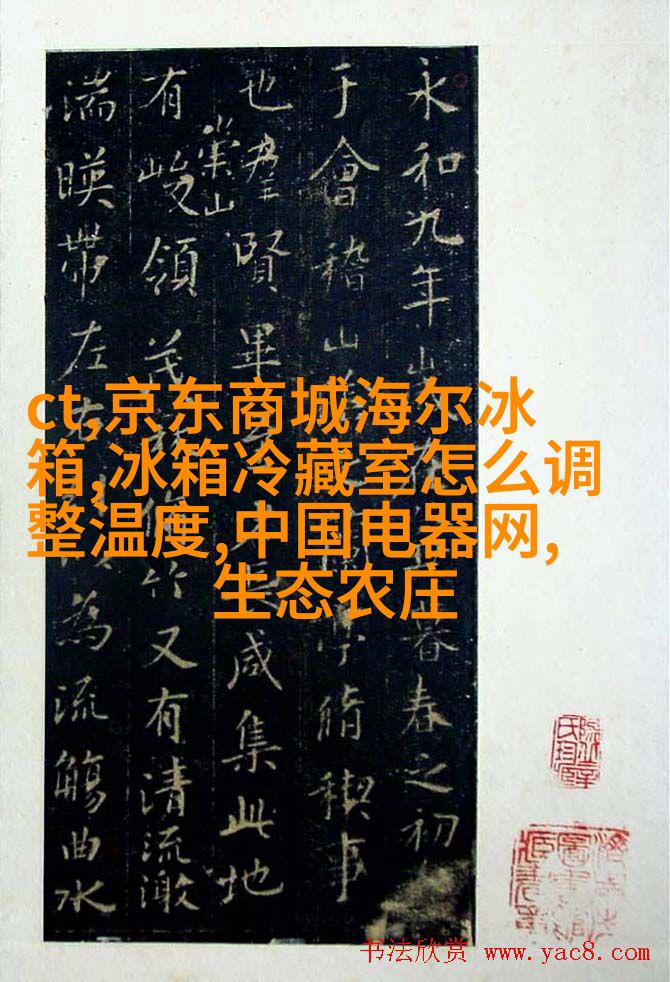 永和九年在暮春之初
于會稽山亭脩禊事
也羣賢畢咸集此地
有崇山峻領茂林竹又有清流激
湍暎帶左右為流觴曲水
ct,京东商城海尔冰
箱,冰箱冷藏室怎么调
整温度,中国电器网,
生态农庄
书法欣赏 www.yac8.com